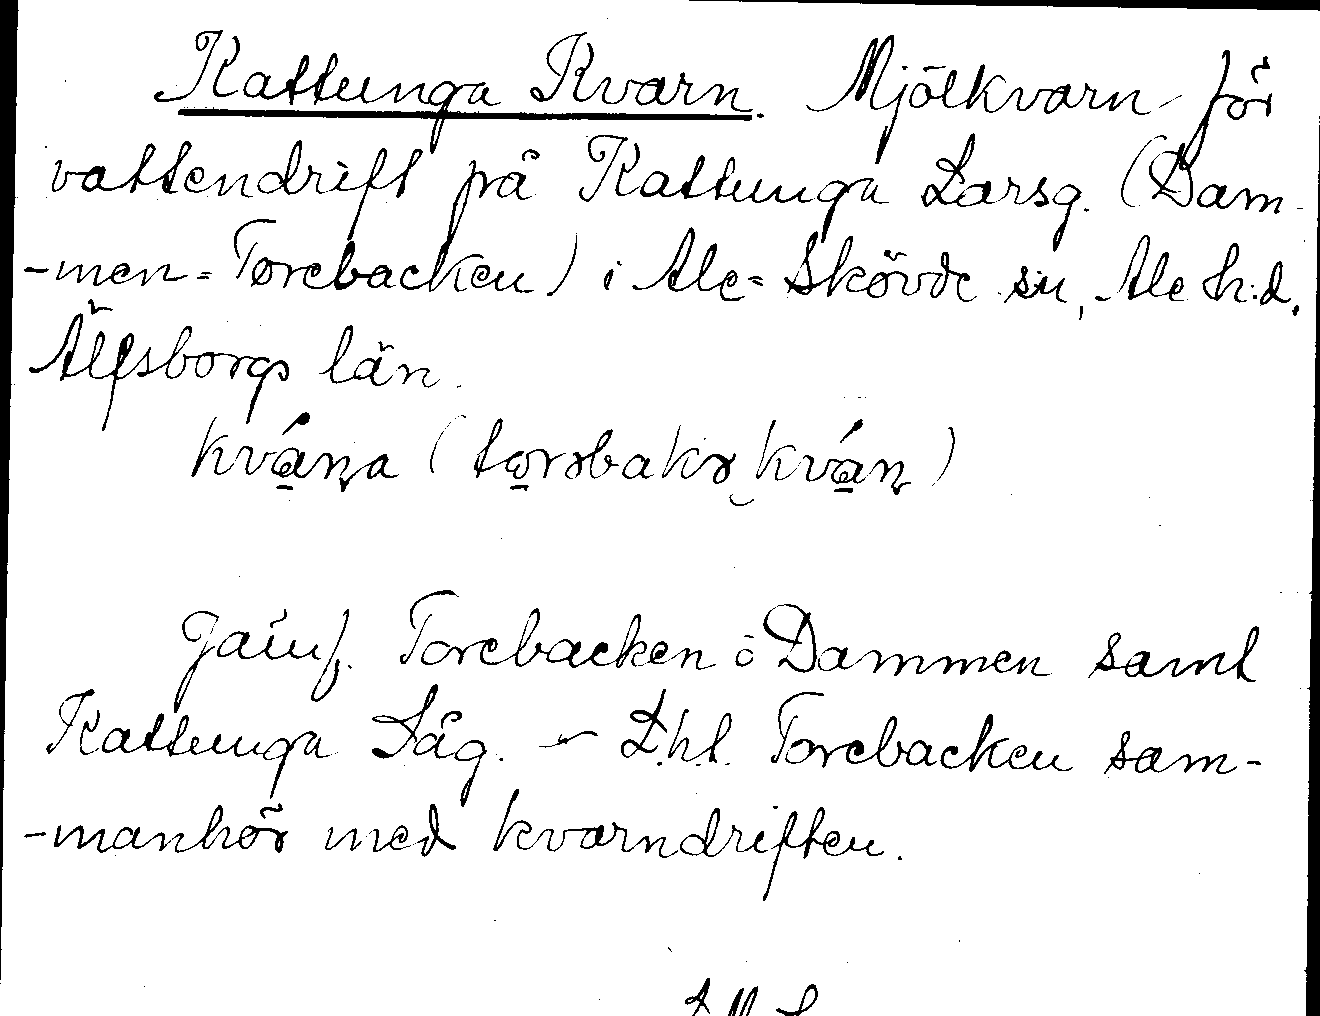 Kattunga Kvarn. Mjölkvarn för
vattendrift på Kattunga Larsg. (Dam-
-men=Torebacken) i Ale=Skövde sn, Ale h:d,
Älfsborgs län.
kvána (torsbakɤ kván)
Jämf. Torebacken o Dammen samt
Kattunga Såg. – L.h.t. Torebacken sam-
-manhör med kvarndriften.